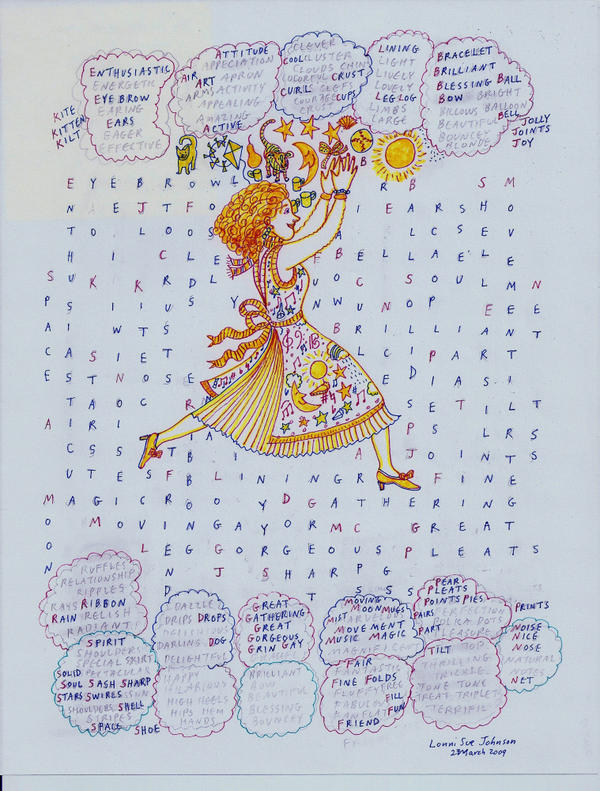 ENTHUSIASTIC
ENERGETIC
EYEBROW
EARING
EARS
EAGER
EFFECTIVE
KITE
KITTEN
KILT
ATTITUDE
APPRECIATION
AIR APRON
ART
ARMS ACTIVITY
APPEALING
AMAZING
ACTIVE
CLEVER
COOL CLUSTER
CLOUDS CHIN
COLORFUL CRUST
CURL CLEFS
COURAGE CUPS
LINING
LIGHT
LIVELY
LOVELY
LEG LOG
LIMBS
LARGE
BRACELET
BRILLIANT
BLESSING BALL
BOW BRIGHT
BILLOUS BALLOON
BEAUTIFUL BELL
BOUNCEY
BLONDE
JOLLY
JOINTS
JOY
E Y E B R O W L R B S M
N E J T F O I E A R S H O
T O L O O S A L C S E V
H I C L E F B E L L A E L E
S U K K R D L U O C S O U L M N
P S I I U S Y N W U N O P E E E
A I W T S B R I L L I A N T
C A S I E T L C I P A R T
E S T N O S E E D I A S I
T A O C R S E T I L T
A I R I P S L R S
C S S T A J O I N T S
U T E S F B L I N I N G R F I N E
M A G I C R O O Y D G A T H E R I N G
O M O V I N G A Y O R M C G R E A T
O L E G G O R G E O U S P L E A T S
N N J S H A R P G
D T S S S
RUFFLES
RELATIONSHIP
RIPPLES
RAYS RIBBON
RAIN RELISH
RADIANT
SPIRIT
SHOULDERS
SPECIAL SKIRT
SOLID SPECTACULAR
SOUL SASH SHARP
STARS SWIRES SUN
SHOULDERS SHELL
STRIPES
SPACE SHOE
DAZZLE
DRIPS DROPS
DELISHIOUS
DARLING DOG
DELIGHTFUL
HAPPY
HILARIOUS
HIGH HEELS
HIPS HEM
HANDS
GREAT
GATHERING
GREAT
GORGEOUS
GRIN GAY
BRILLIANT
BOW
BEAUTIFUL
BLESSING
BOUNCEY
MOVING
MIST MOON MUGS
MOVEMENT
MUSIC MAGIC
MAGNIFICENT
FAIR
FANTASTIC
FINE FOLDS
FLUFFY FREE
FABULOUS FILL
FUN FLAT FUN
FRIEND
PEARL
PLEATS
POINTS PIES
PAIRS PERFECTION
POLKA DOTS
PART PLEASURE
TILT TOP
THRILLING
TRICKLE
TONE TUNE
TREAT TRIPLET
TERRIFIC
PRINTS
NOISE
NICE
NOSE
NATURAL
NOTES
NET
Lonni Sue Johnson
23 March 2009